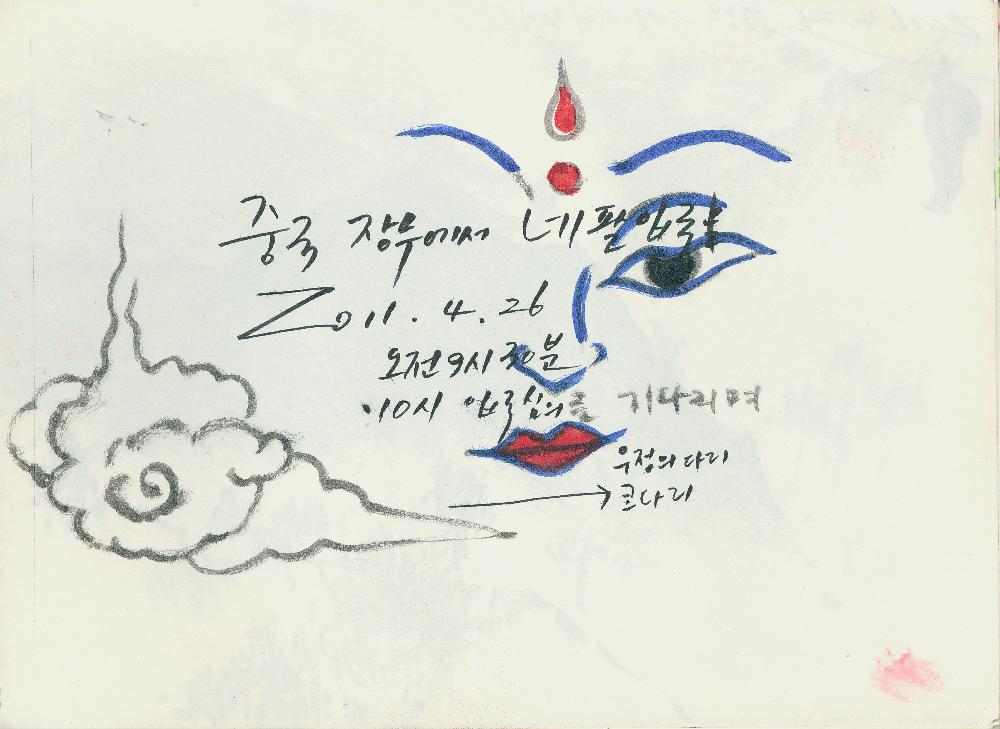 중국 장무에서 네팔입국을
2011. 4. 26
오전9시 30분
10시 입국심의를 기다리며
우정의 다리
코다리